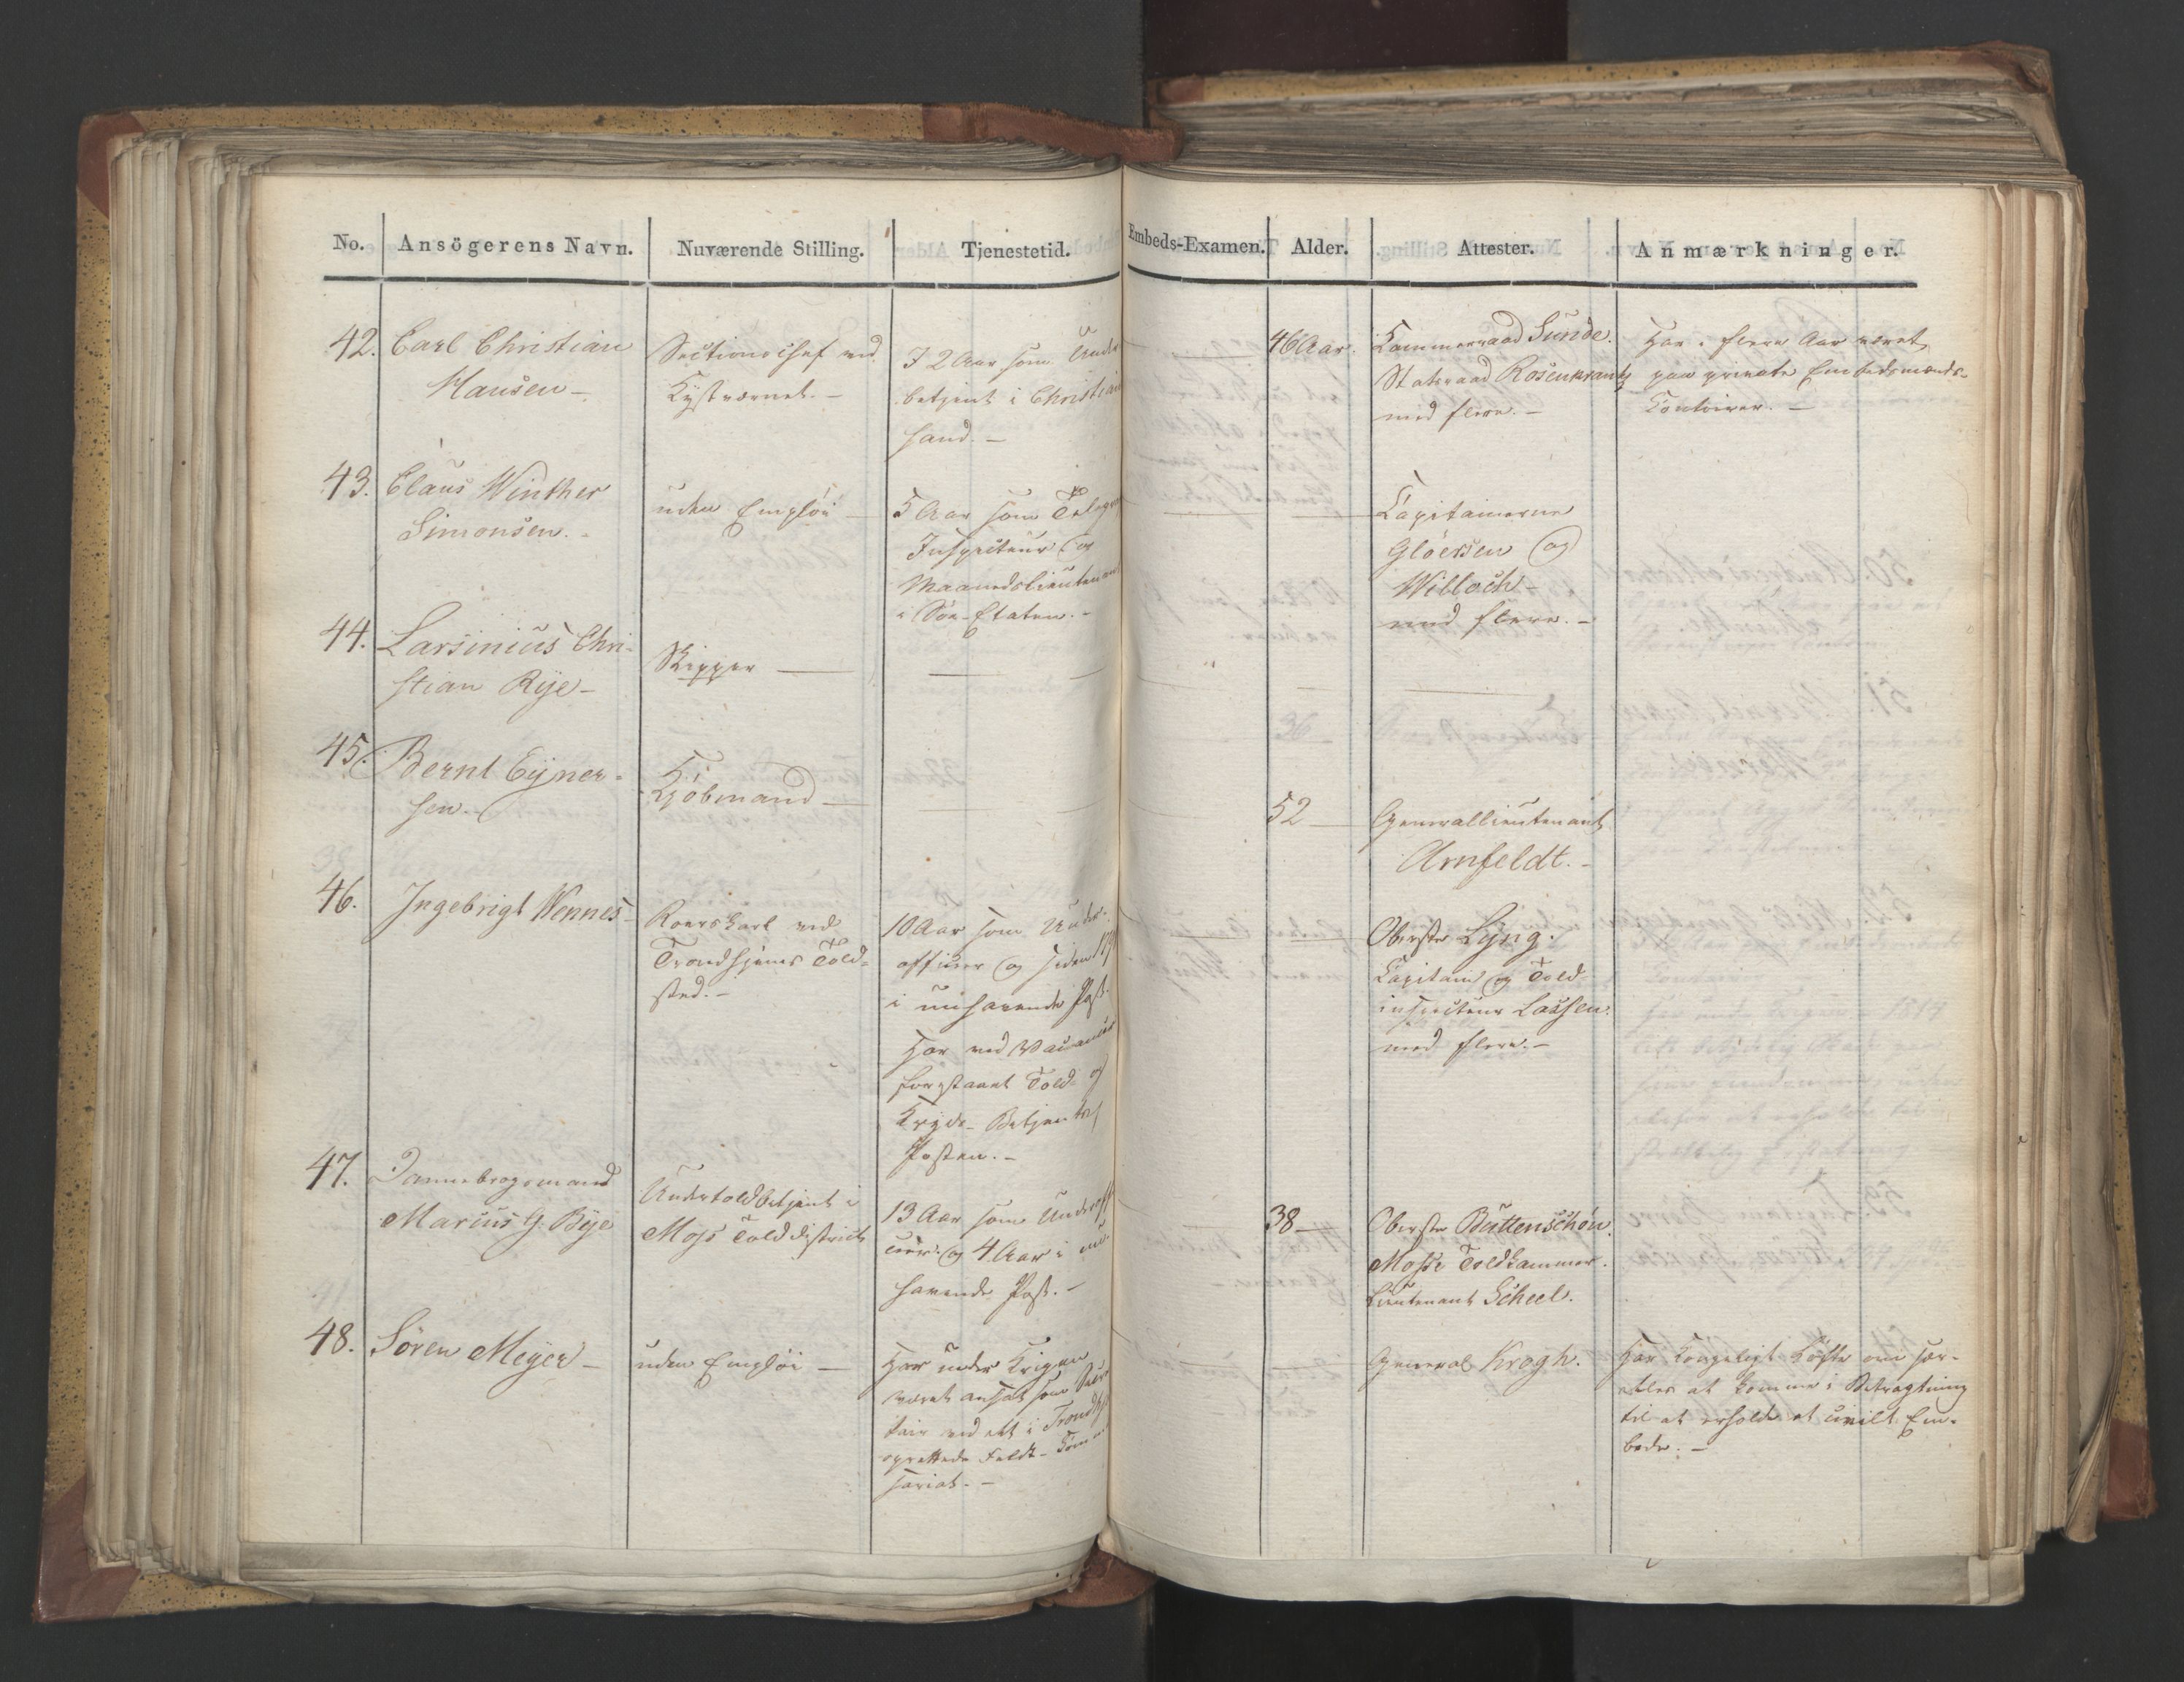 No. Ansögerens Navn. Nuværende Stilling. Tjenestetid. Embeds-Examen. Alder. Attester. Anmærkninger.
42. Carl Christian
Hansen –
Sectionschef ved
Kystværnet. –
I 2 Aar som Under
betjent i Christian
sand. –
46 Aar.
Kammerraad Sunde.
Statsraad Rosenkrantz
med flere. –
Har i flere Aar været
paa private Embedsmænds-
Contoirer. –
43. Claus Winther
Simonsen. –
uden Emploi –
5 Aar som Telegraph
Inspecteur og
Maanedslieutenant
i Söe-Etaten. –
Capitainerne
Gløersen og
Willoch –
med flere. –
44. Larsinius Chri-
stian Rye –
Skipper –
45. Bernt Eyner-
sen. –
Kjöbmand –
52 –
Generallieutenant
Arnfeldt. –
46. Ingebrigt Wennes –
Roerskarl ved
Trondhjems Told-
sted. –
10 Aar som Under-
officier og siden
i nuhavende Post.
Har ved Vacancer
forestaaet Told- og
Kryds-Betjent
Posten. –
Oberste Lyng.
Capitain og Told-
inspecteur Lassen.
med flere. –
47. Dannebrogsmand
Marius G. Bye
Undertoldbetjent i
Moss Tolddistrict
13 Aar som Underoffi
cier og 4 Aar i nu
havende Post. –
38 –
Oberste Büttenschøn.
Mosse Toldkammer.
Lieutenant Scheel.
48. Sören Meyer –
uden Emploi –
Har under Krigen
været ansat som Secre
tair ved det i Trondhj
oprettede Feldt-Com
sariat. –
General Krogh.
Har Kongeligt Löfte om frem-
at komme i Betragtning
til at erholde et civilt Em-
bede. –